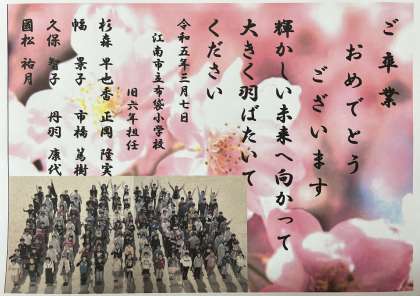 ご卒業
おめでとう
ございます
輝かしい未来へ向かって
大きく羽ばたいて
ください
令和五年三月七日
江南市立布袋小学校
旧六年担任
杉森 早也香 正岡 隆実
幅 景子 市橋 篤樹
久保 智子 丹羽 康代
國松 祐月